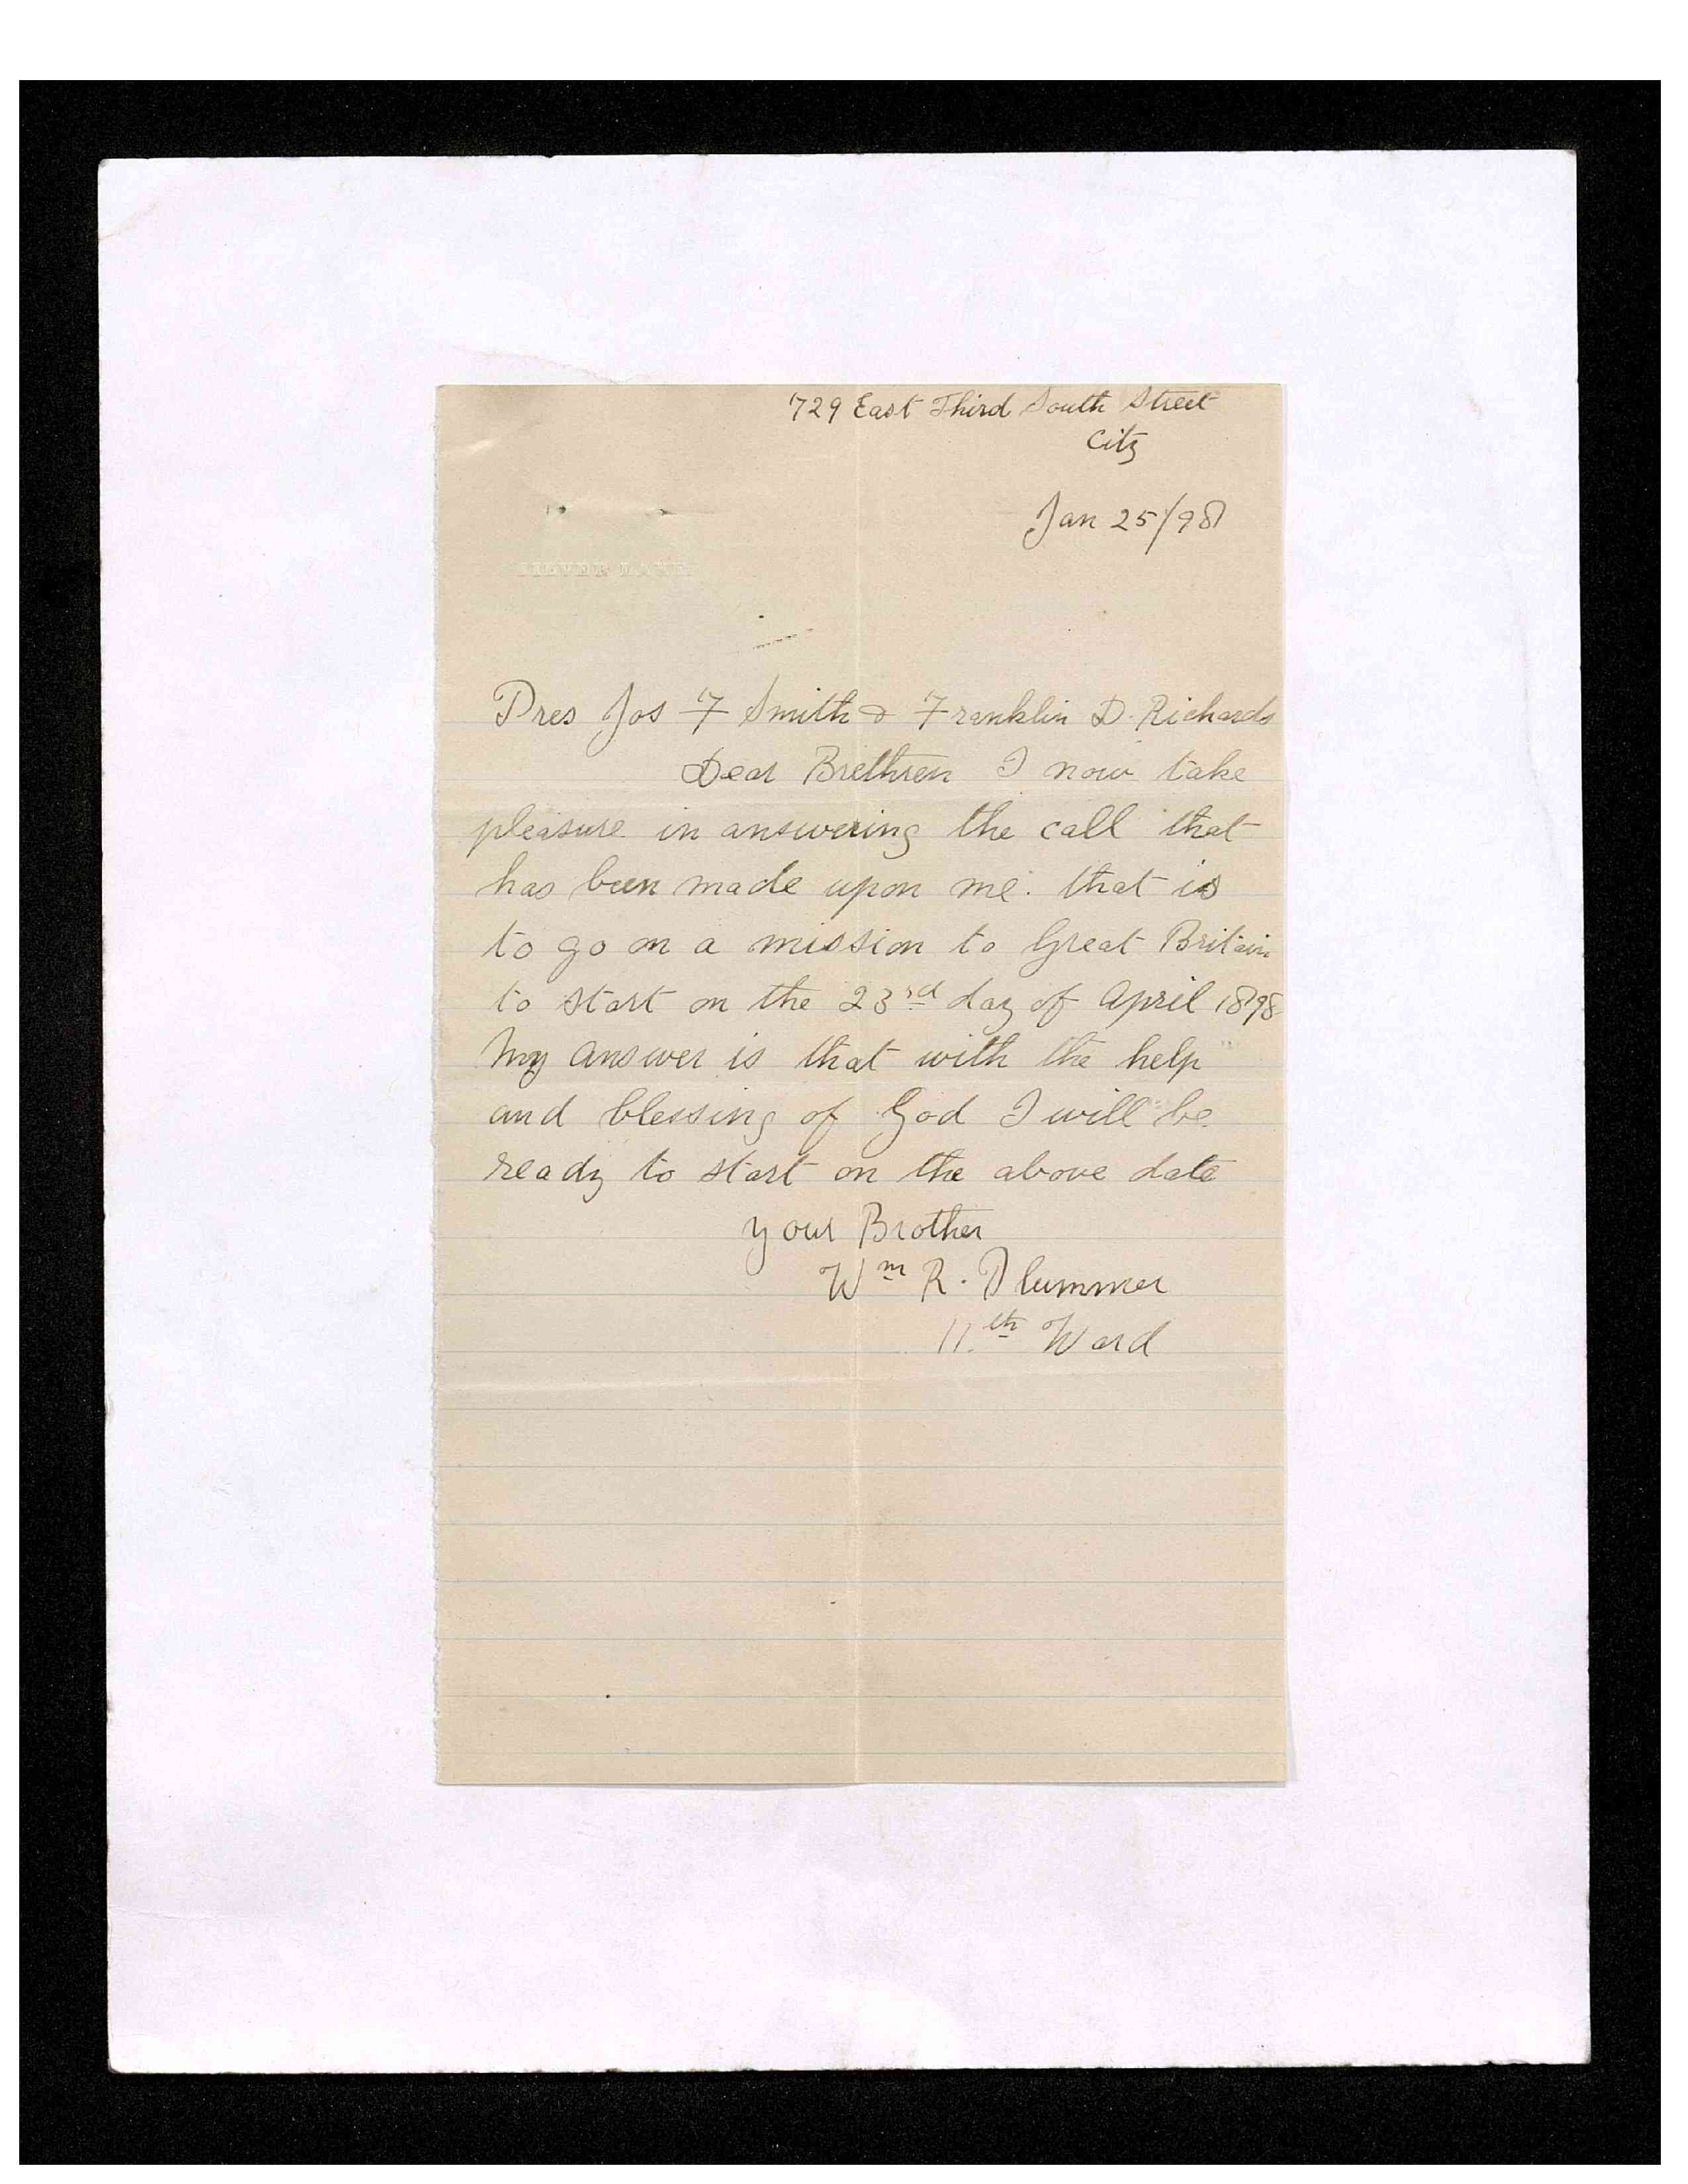 729 East Third South Street
City
Jan 25/98
Pres Jos F Smith & Franklin D. Richards
Dear Brethren I now take
pleasure in answering the call that
has been made upon me. that is
to go on a mission to Great Britain
to start on the 23rd day of April 1898
My answer is that with the help
and blessing of God I will be
ready to start on the above date
your Brother
Wm R. Plummer
11.th Ward